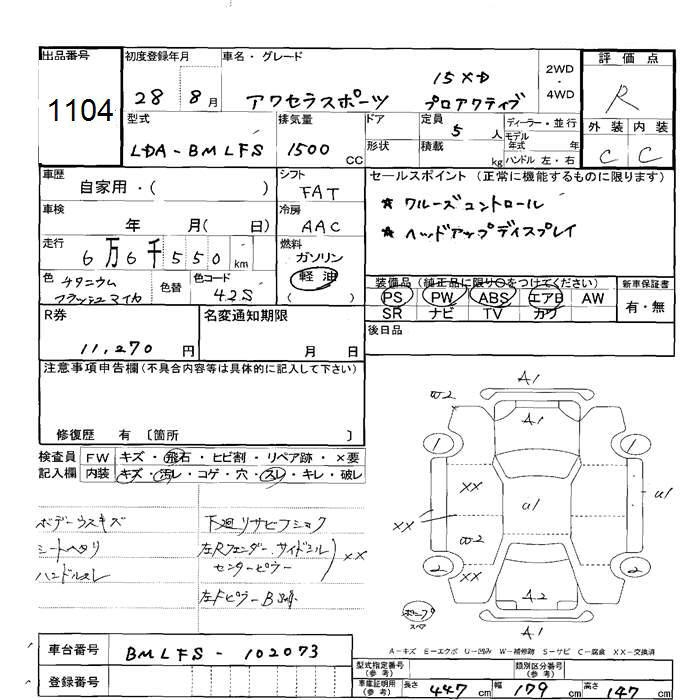 出品番号
1104
初度登録年月
28 8月
車名・グレード
15XD
アクセラスポーツ プロアクティブ
2WD
・
4WD
評価点
R
外装 内装
C C
型式
LDA-BMLFS
排気量
1500 CC
ドア
形状
定員
5 人
積載
kg
ディーラー・並行
モデル
年式 年
ハンドル 左・右
車歴
自家用・( )
シフト
FAT
セールスポイント (正常に機能するものに限ります)
★ クルーズコントロール
★ ヘッドアップディスプレイ
車検
年 月( 日)
冷房
AAC
走行
6万6千550km
燃料
ガソリン
軽油
( )
色 チタニウム
フラッシュマイカ
色替
色コード
42S
装備品 (純正品に限り○をつけてください)
PS PW ABS エアB AW
SR ナビ TV カワ
新車保証書
有・無
R券
11,270 円
名変通知期限
月 日
後日品
注意事項申告欄(不具合内容等は具体的に記入して下さい)
修復歴 有 〔箇所 〕
検査員 FW キズ・飛石・ヒビ割・リペア跡・×要
記入欄 内装 キズ・汚レ・コゲ・穴・スレ・キレ・破レ
ボデーウスキズ
シートヘタリ
ハンドルスレ
下廻リサビフショク
左Rフェンダー サイドシル
センターピラー
××
左Fピラー B
A1
ω2
A1
1
1
××
××
U1
U1
ω2
2
2
××
A2
A1
スペア
A-キズ E-エクボ U-凹み W-補修跡 S-サビ C-腐食 XX-交換済
車台番号
BMLFS-102073
登録番号
型式指定番号
(参考)
類別区分番号
(参考)
車庫証明用
(参考)
長さ 447 cm 幅 179 cm 高さ 147 cm